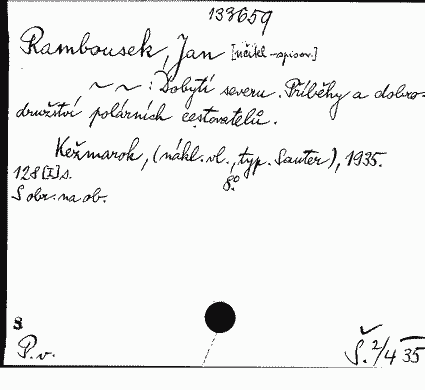 133659
Rambousek, Jan [učitel-spisov.]
~ ~ : Dobytí severu. Příběhy a dobro-
družství polárních cestovatelů.
Kežmarok, (nákl. vl., typ. Sauter), 1935.
128 [I] s. 8°.
S obr. na ob.
8
P.v. Š. 2/4 35